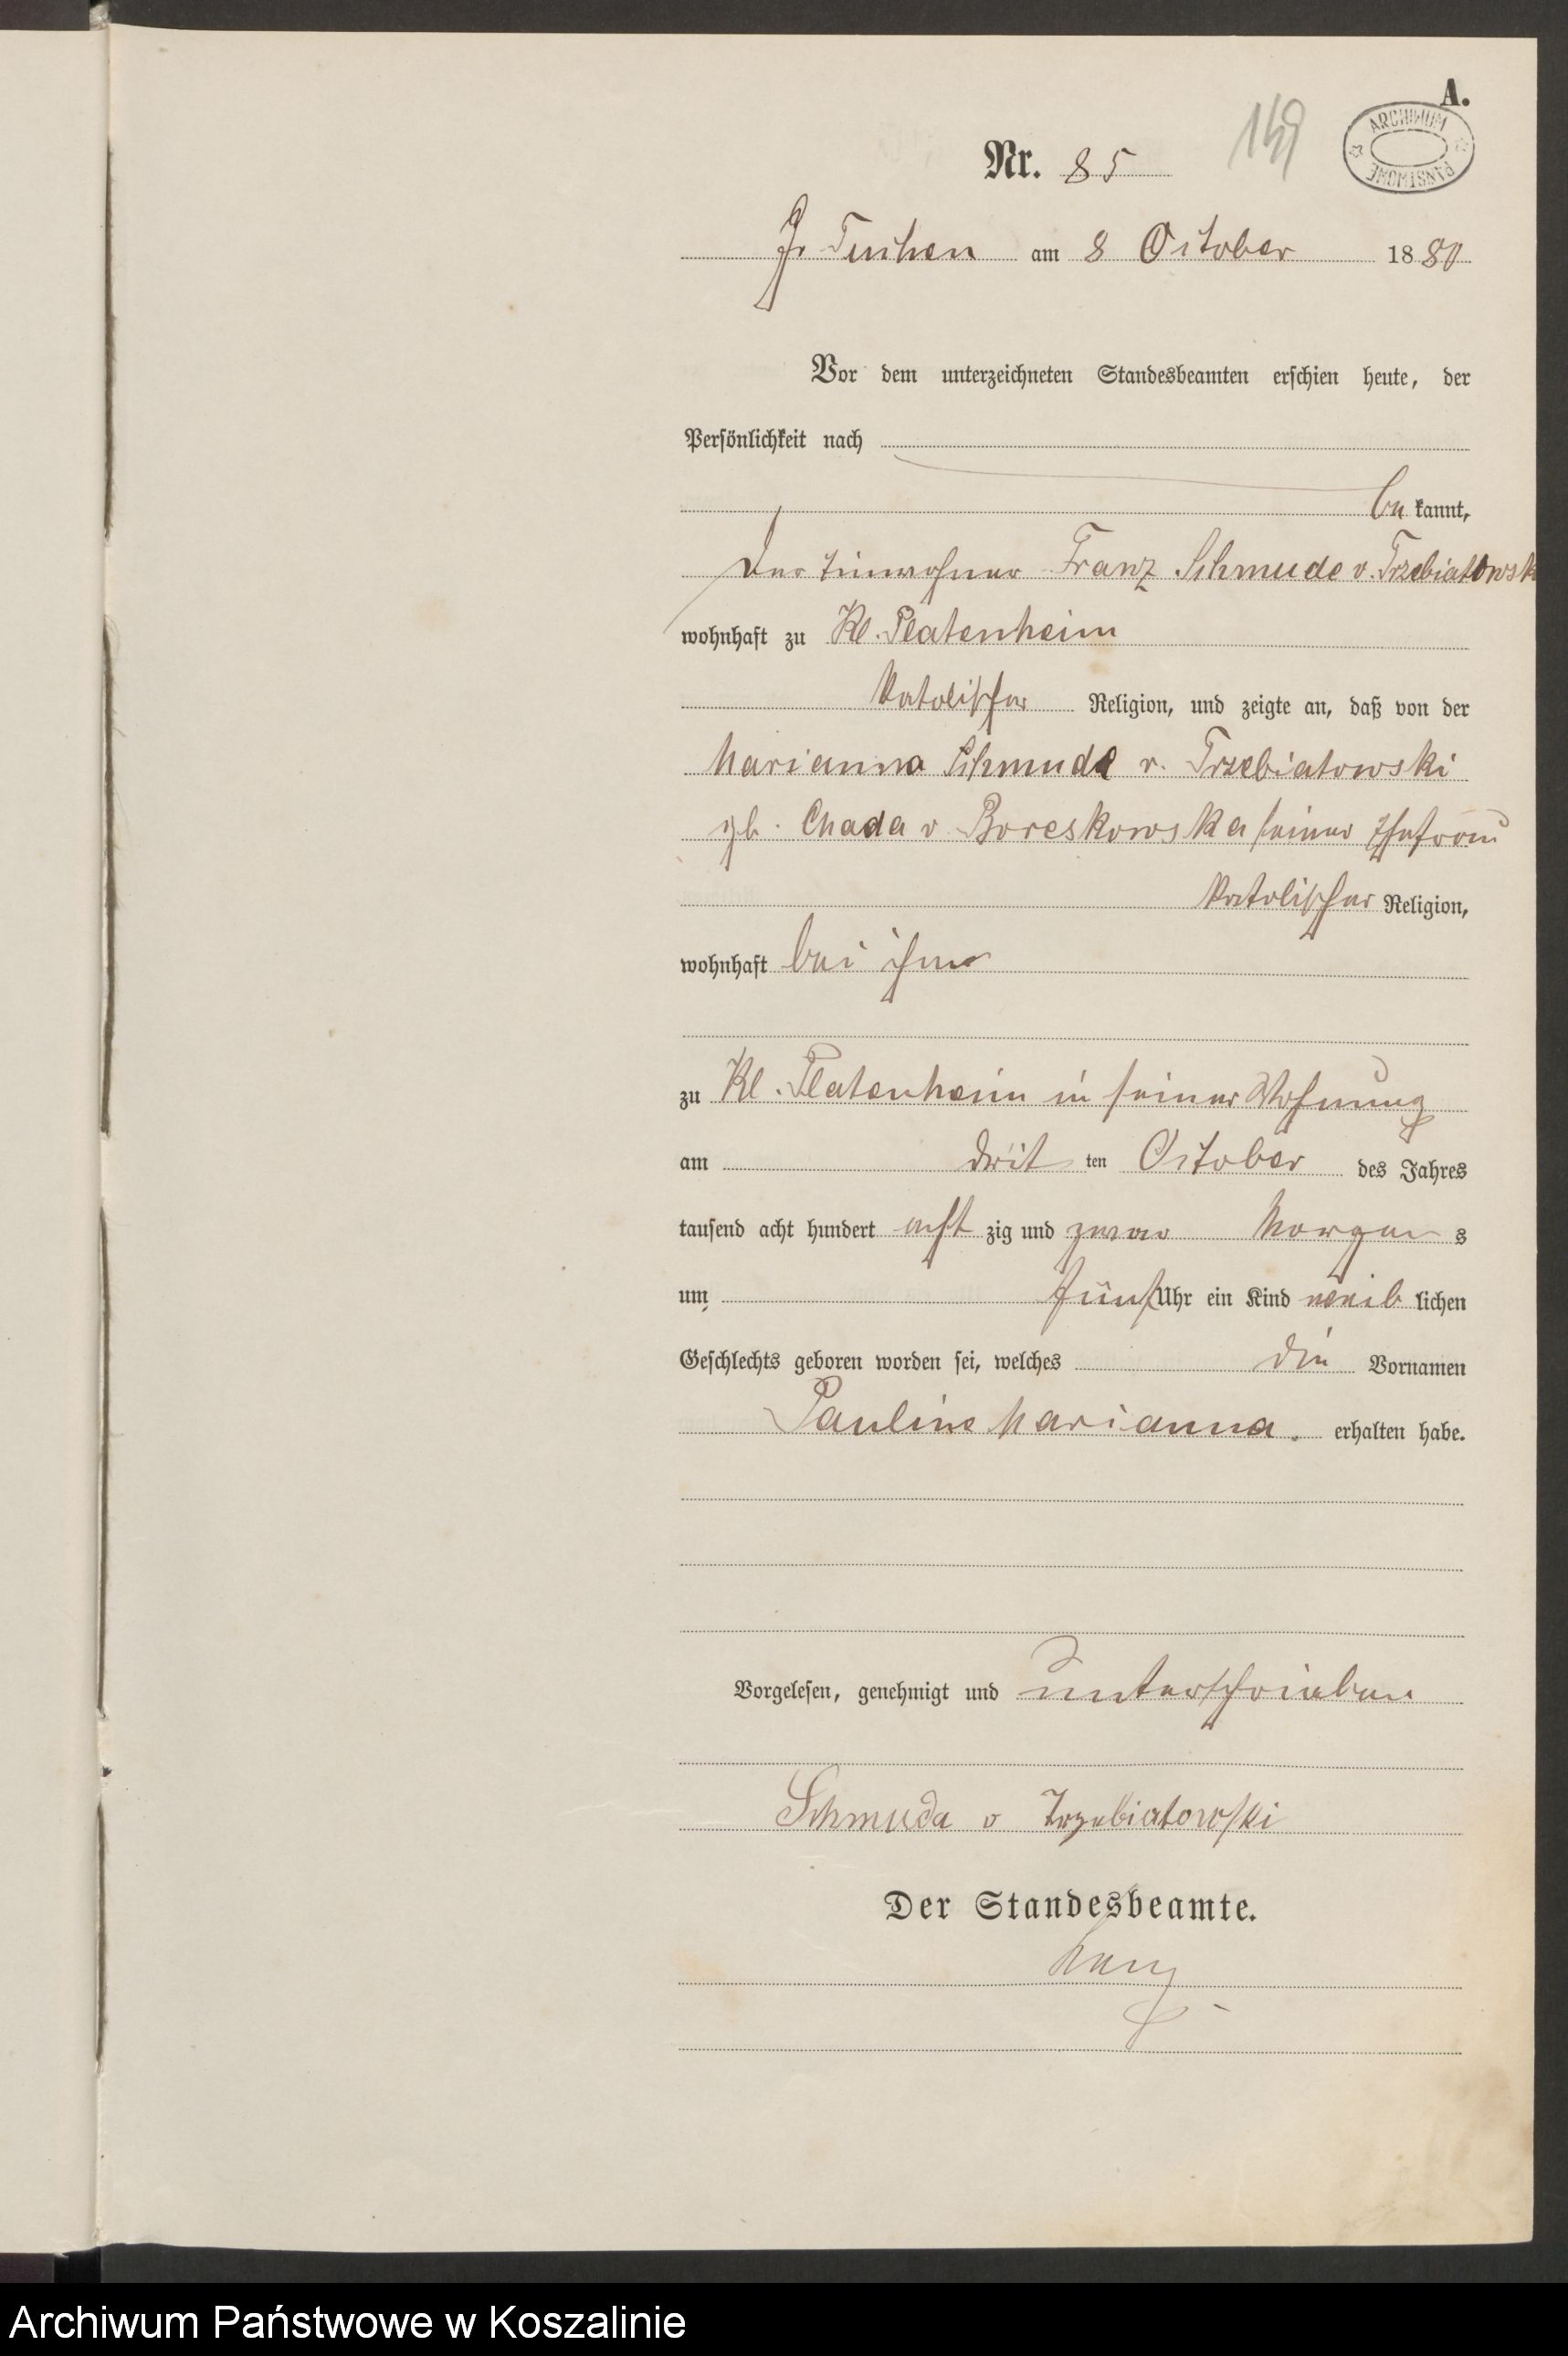 A.
149
ARCHIWUM PAŃSTWOWE
Nr. 85
Gr Tuchen am 8 October 1880
Vor dem unterzeichneten Standesbeamten erschien heute, der
Persönlichkeit nach
be kannt,
der Einwohner Franz Schmude v. Trzebiatowsk
wohnhaft zu Kl. Platenheim
katolischer Religion, und zeigte an, daß von der
Marianna Schmude v. Trzebiatowski
gb. Chada v Boreskowska seiner Ehefrau
katolischer Religion,
wohnhaft bei ihm
zu Kl. Platenheim in seiner Wohnung
am dritten October des Jahres
tausend acht hundert acht zig und zwar Morgens
um fünf Uhr ein Kind weiblichen
Geschlechts geboren worden sei, welches die Vornamen
Pauline Marianna. erhalten habe.
Vorgelesen, genehmigt und unterschrieben
Schmuda v Trzebiatowski
Der Standesbeamte.
Archiwum Państwowe w Koszalinie